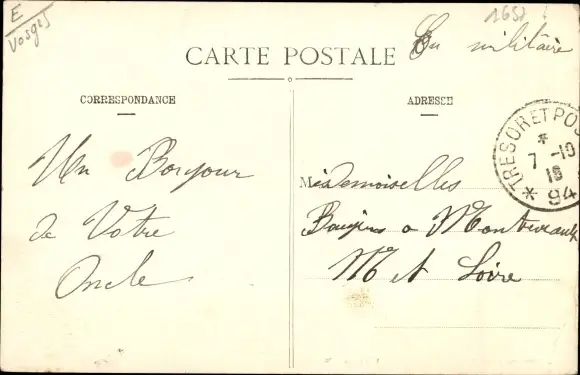 E
Vosges
1651
En militaire
CARTE POSTALE
CORRESPONDANCE
ADRESSE
TRESOR ET POS
*
7 -10
16
* 94
Un Bonjour
de Votre
Oncle
Mesdemoiselles
a Montrevault
M et Loire